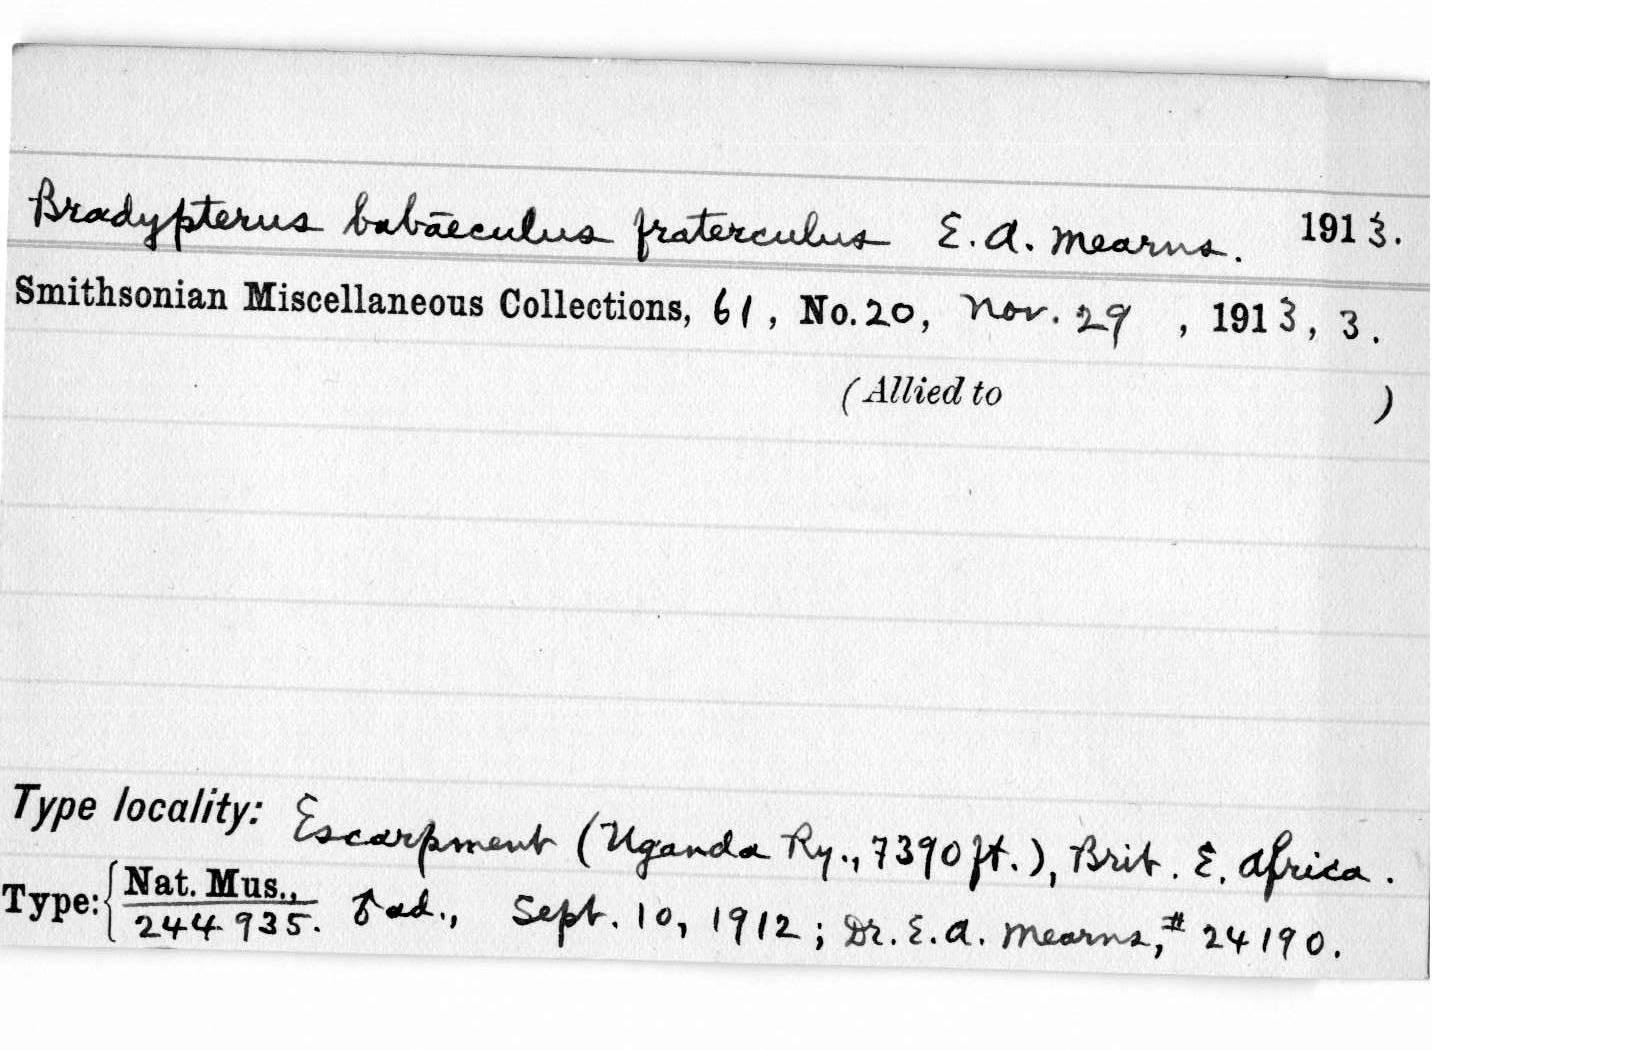 Bradypterus babaeculus fraterculus E. A. Mearns. 1913.
Smithsonian Miscellaneous Collections, 61, No. 20, Nov. 29, 1913, 3.
(Allied to )
Type locality: Escarpment (Uganda Ry., 7390 ft.), Brit. E. Africa.
Type: { Nat. Mus., ♂ ad., Sept. 10, 1912; Dr. E. A. Mearns, # 24190.
244935.